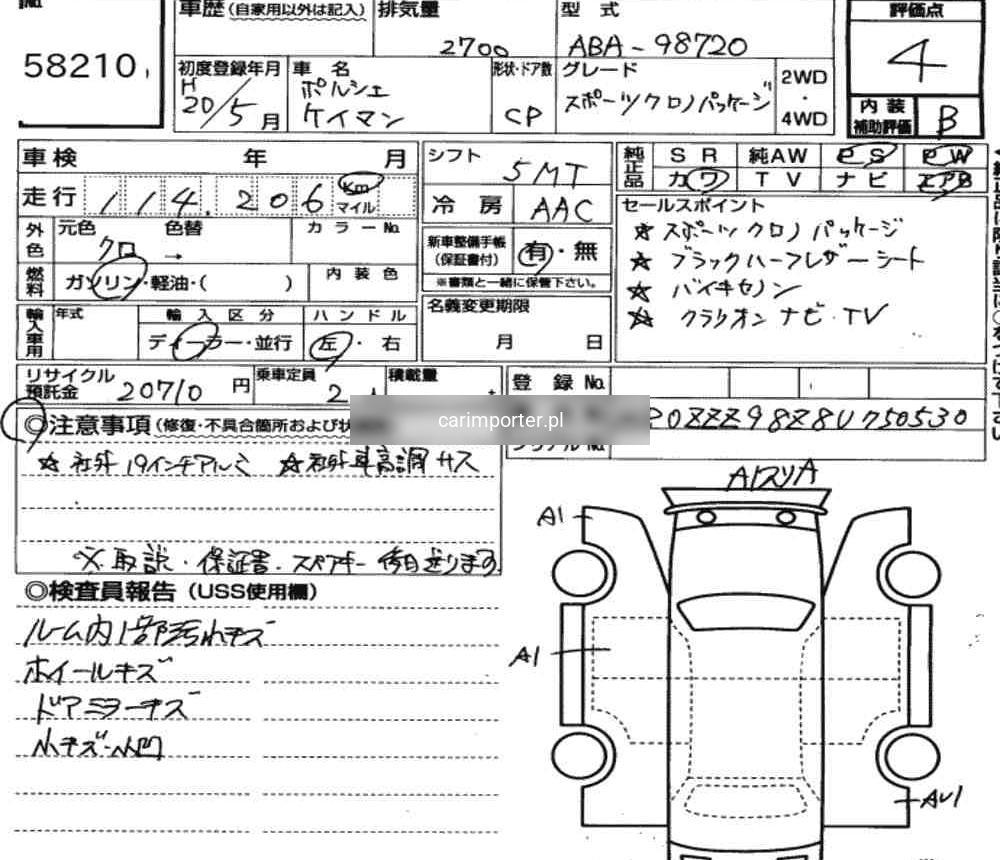 No.
58210
車歴(自家用以外は記入) 排気量 2700
型式 ABA-98720
評価点 4
初度登録年月 H20/5月
車名 ポルシェ ケイマン
形状・ドア数 CP
グレード スポーツクロノパッケージ
2WD・4WD
内装補助評価 B
車検 年 月
走行 114,206 Km マイル
シフト 5MT
冷房 AAC
純正品 SR 純AW PS PW
カワ TV ナビ エアB
外色 元色 クロ → 色替 カラーNo.
燃料 ガソリン・軽油・( ) 内装色
新車整備手帳(保証書付) 有・無
※書類と一緒に保管下さい。
名義変更期限 月 日
セールスポイント
☆ スポーツクロノパッケージ
☆ ブラックハーフレザーシート
☆ バイキセノン
☆ クラリオン ナビ・TV
輸入車用 年式 輸入区分 ディーラー・並行 ハンドル 左・右
リサイクル預託金 20710円
乗車定員 2人
積載量
登録No.
carimporter.pl
ZZZ98Z8U750530
シリアルNo.
◎注意事項(修復・不具合箇所および
☆ 社外19インチアルミ ☆ 社外車高調サス
※取説・保証書・スペアキー 後日送ります
◎検査員報告(USS使用欄)
ルーム内1部汚れキズ
ホイールキズ
ドアミラーキズ
小キズ・小凹
A1
A1
AU1